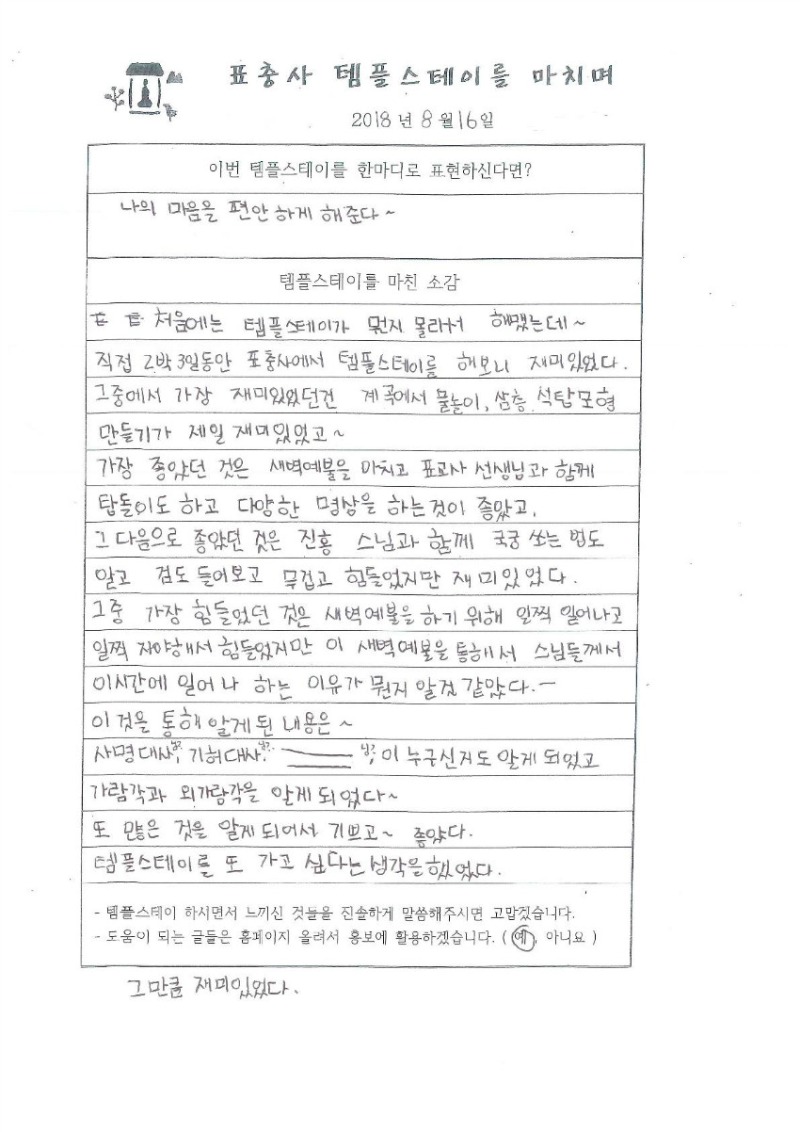 표충사 템플스테이를 마치며
2018년 8월 16일
이번 템플스테이를 한마디로 표현하신다면?
나의 마음을 편안하게 해준다~
템플스테이를 마친 소감
처음에는 템플스테이가 뭔지 몰라서 해맸는데~
직접 2박 3일동안 표충사에서 템플스테이를 해보니 재미있었다.
그중에서 가장 재미있었던건 계곡에서 물놀이, 삼층 석탑모형
만들기가 제일 재미있었고~
가장 좋았던 것은 새벽예불을 마치고 포교사 선생님과 함께
탑돌이도 하고 다양한 명상을 하는것이 좋았고,
그 다음으로 좋았던 것은 진홍 스님과 함께 국궁 쏘는 법도
알고 검도 들어보고 무겁고 힘들었지만 재미있었다.
그중 가장 힘들었던 것은 새벽예불을 하기 위해 일찍 일어나고
일찍 자야해서 힘들었지만 이 새벽예불을 통해서 스님들께서
이시간에 일어나 하는 이유가 뭔지 알것 같았다.ㅡ
이것을 통해 알게된 내용은~
사명대사님, 기허대사님, 님, 이 누구신지도 알게 되었고
가람각과 외가람각을 알게 되었다~
또 많은 것을 알게되어서 기쁘고~ 좋았다.
템플스테이를 또 가고 싶다는 생각을했었다.
- 템플스테이 하시면서 느끼신 것들을 진솔하게 말씀해주시면 고맙겠습니다.
- 도움이 되는 글들은 홈페이지 올려서 홍보에 활용하겠습니다. ( 예, 아니요 )
그만큼 재미있었다.